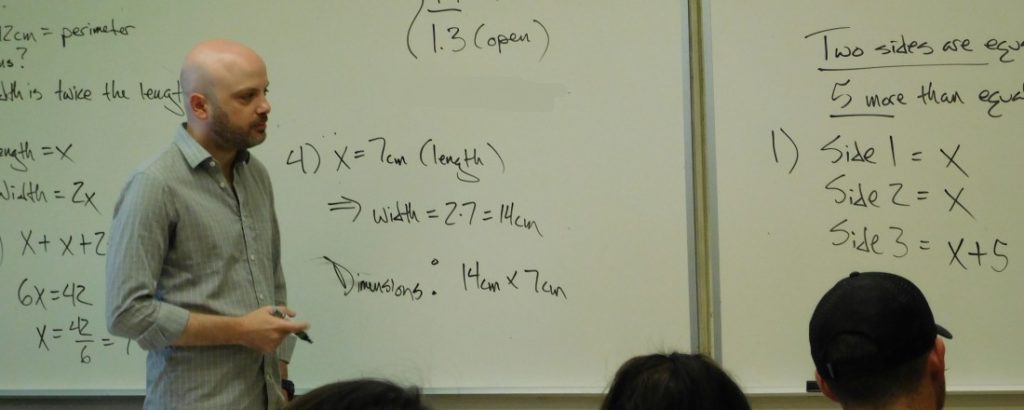 2cm = perimeter
ns?
dth is twice the lengt
ength = x
Width = 2x
) x + x + 2
6x = 42
x = 42/6 =
11
1.3 (open)
4) x = 7cm (length)
⇒ width = 2·7 = 14cm
Dimensions: 14cm x 7cm
Two sides are equa
5 more than equa
1) Side 1 = x
Side 2 = x
Side 3 = x+5